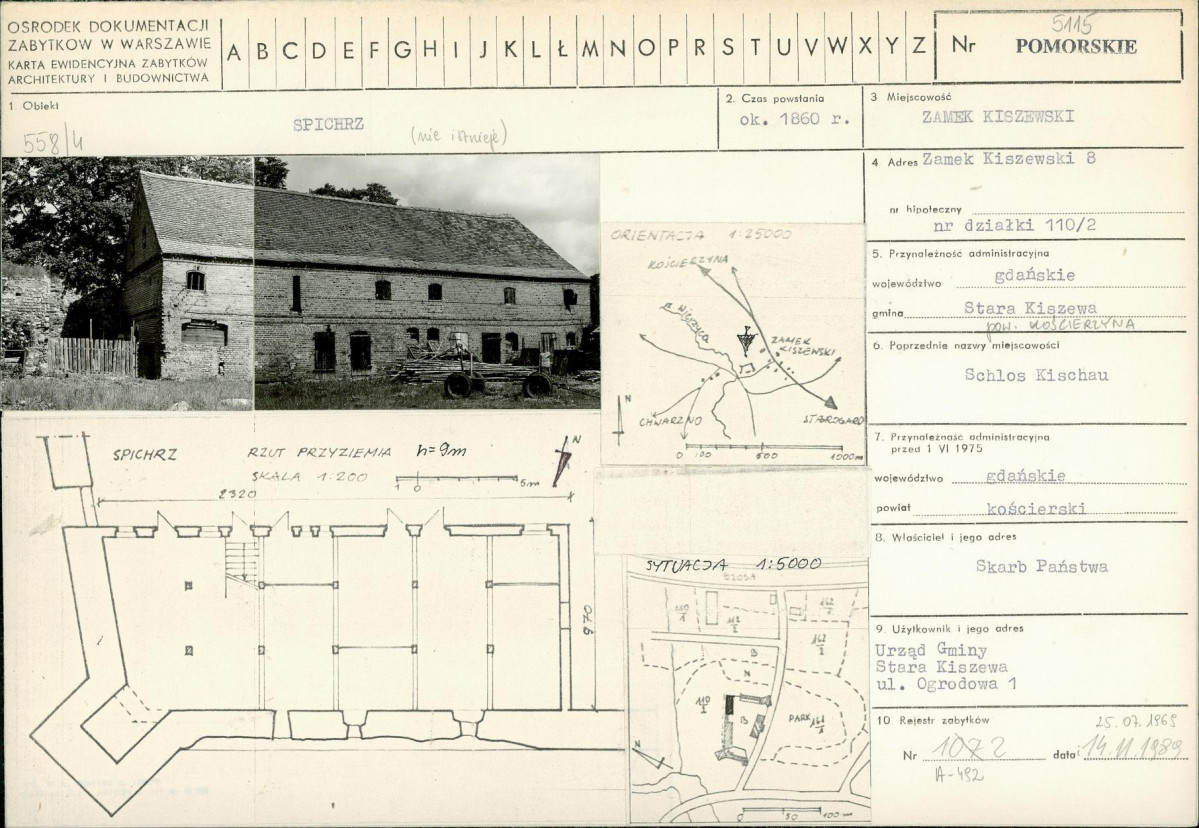 OSRODEK DOKUMENTACJI
ZABYTKOW W WARSZAWIE
KARTA EWIDENCYJNA ZABYTKÓW
ARCHITEKTURY I BUDOWNICTWA
A B C D E F G H I J K L Ł M N O P R S T U V W X Y Z
Nr
5115
POMORSKIE
1. Obiekt
558/4
SPICHRZ
(nie istnieje)
2. Czas powstania
ok. 1860 r.
3 Miejscowość
ZAMEK KISZEWSKI
4 Adres Zamek Kiszewski 8
nr hipoteczny
nr działki 110/2
5. Przynależność administracyjna
województwo gdańskie
gmina Stara Kiszewa
pow. KOŚCIERZYNA
6. Poprzednie nazwy miejscowości
Schlos Kischau
7. Przynależność administracyjna
przed 1 VI 1975
województwo gdańskie
powiat kościerski
8. Właściciel i jego adres
Skarb Państwa
9. Użytkownik i jego adres
Urząd Gminy
Stara Kiszewa
ul. Ogrodowa 1
10. Rejestr zabytków
25.07.1969
Nr 1072 data 14.11.1989
A-492
ORIENTACJA 1:25000
KOŚCIERZYNA
R. WIERZYCA
ZAMEK
KISZEWSKI
N
CHWARZNO
STAROGARD
0 100 500 1000m
SPICHRZ
RZUT PRZYZIEMIA h=9m
SKALA 1:200
N
1 0 5m
2320
970
SYTUACJA 1:5000
SZOSA
110/1
112/1
162/1
B
N
110/1
B
PARK
N
0 50 100 m